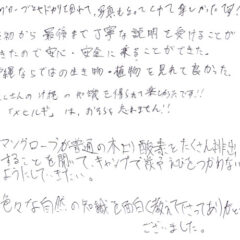 写真もとってくれて楽しかった
初から最後まで丁寧な説明を受けることが
きたので安心・安全に乗ることができた。
縄ならではの生き物・植物を見れて良かった。
さんの沖縄の知識を得られて楽しめたです!!
「メヒルギ」は、わすれません!!
マングローブが普通の木より酸素をたくさん排出
することを聞いて、キャンプで炭や えだをつかわない
ようにしていきたい。
色々な自然の知識を面白く教えて下さってありがとう
ございました。